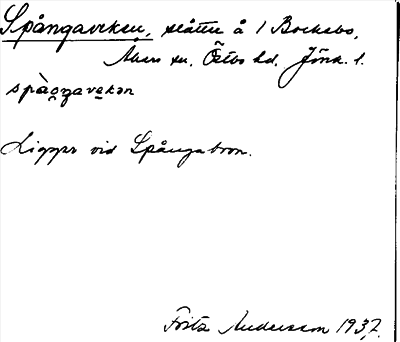 Spångaveken, slåtter å 1 Bockebo,
Åkers sn. Östbo hd. Jönk. l.
spåŋgavekən
Ligger vid Spångabron.
Fritz Andersson 1937.